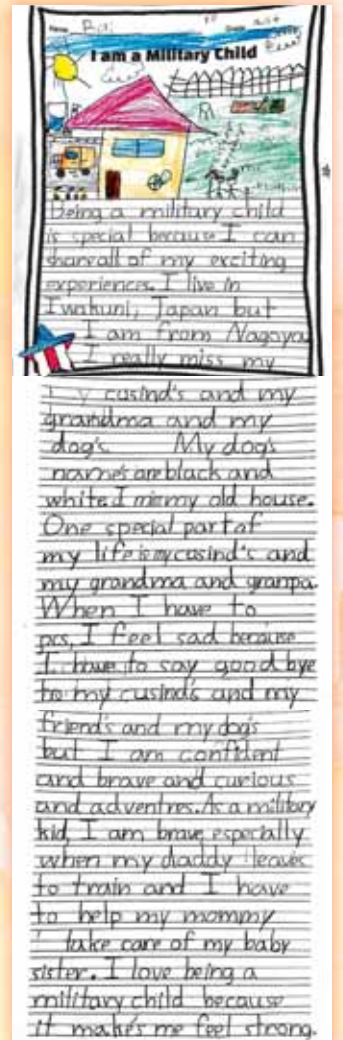 Name
I am a Military Child
Being a military child
is special because I can
share all of my exciting
experiences. I live in
Iwakuni, Japan but
I am from Nagoya
I really miss my
cusind's and my
grandma and my
dog's. My dog's
name's are black and
white I miss my old house.
One special part of
my life is my cusind's and
my grandma and granpa.
When I have to
pcs, I feel sad because
I have to say good bye
to my cusind's and my
friend's and my dog's
but I am confident
and brave and curious
and adventres. As a military
kid, I am brave especially
when my daddy leaves
to train and I have
to help my mommy
take care of my baby
sister. I love being a
military child because
it makes me feel strong.